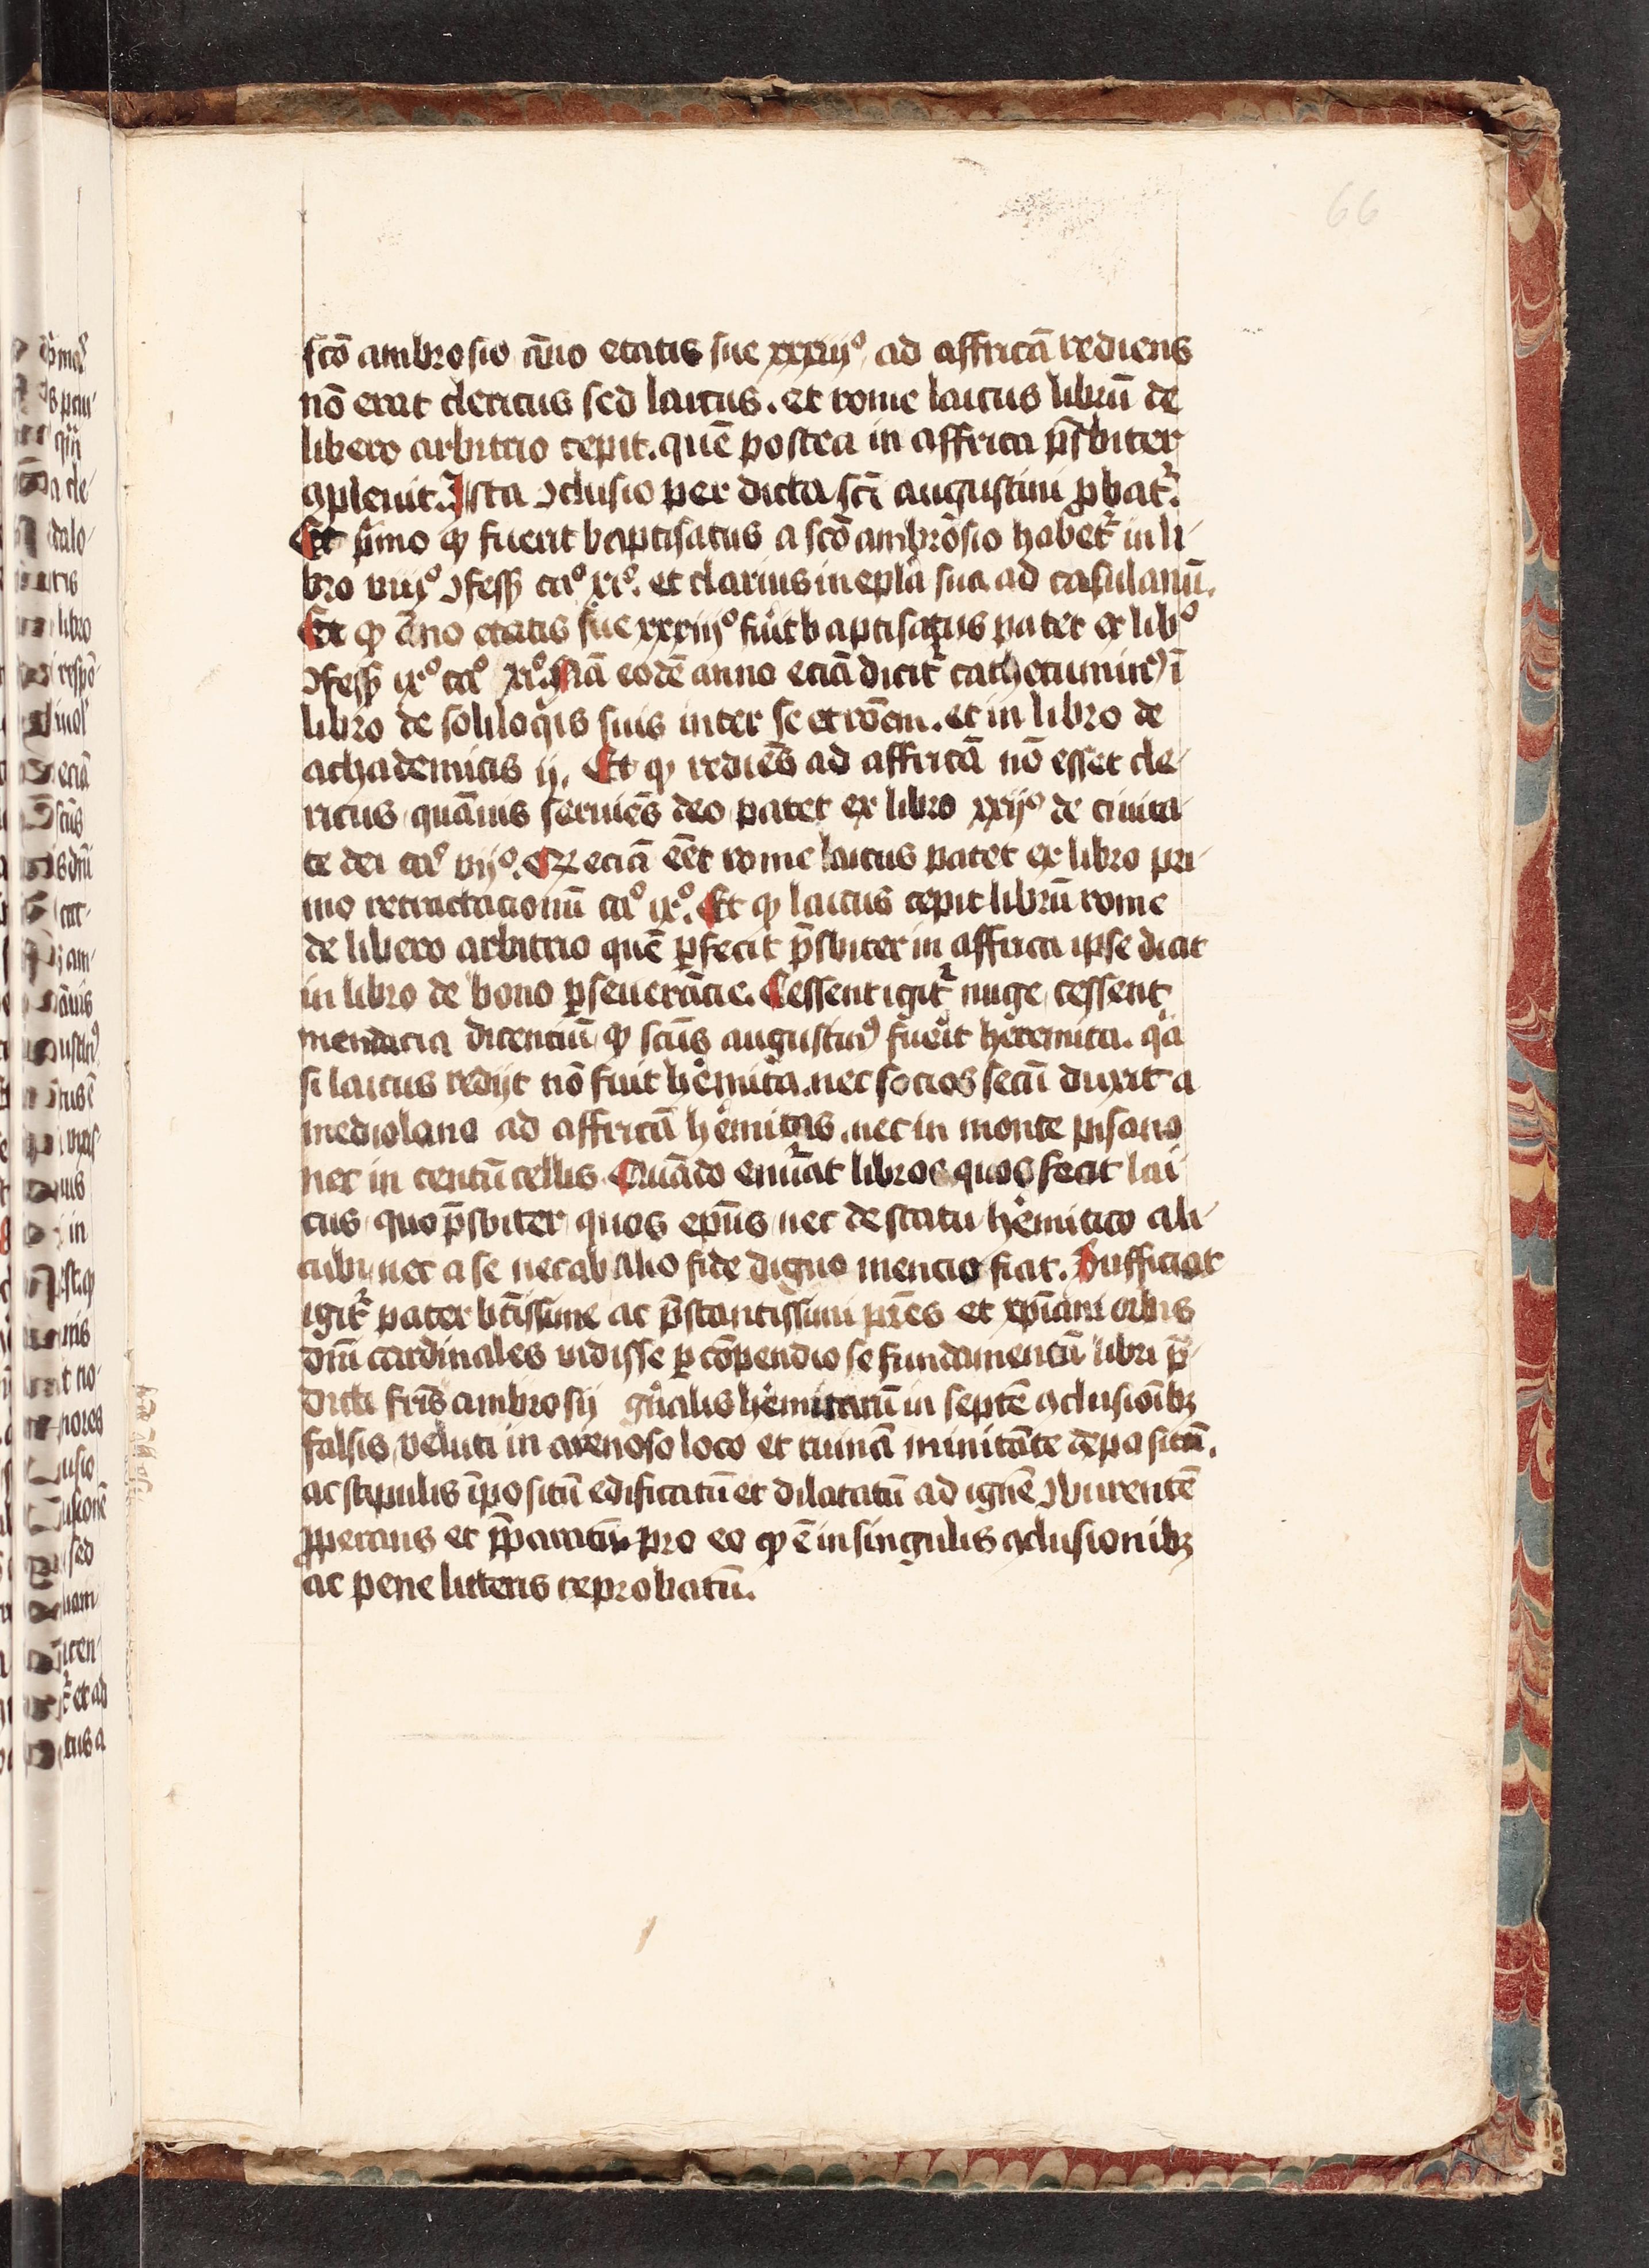 66
sco̅ ambrosio a̅no etatis sue xxxiijº ad affrica̅ rediens
no̅ erat clericus sed laicus. et rome laicus libru̅ de
libero arbitrio cepit. que̅ postea in affrica p̅sbiter
ꝯpleuit. Ista ꝯclusio per dicta sci̅ augustini ꝓbat᷑.
Et p̅mo ꝙ fuerit baptisatus a sco̅ ambrosio habet᷑ in li-
bro viiijº ꝯfess̅ caº xiº. et clarius in epl̅a sua ad casulanu̅.
Et ꝙ a̅no etatis sue xxxiijº fuit baptisatus patet ex libº
ꝯfess̅ ixº caº xiº. Na̅ eode̅ anno ecia̅ dicit᷑ cathecuminꝰ i̅
libro de soliloqͥis suis inter se et ro̅em. et in libro de
achademicis ij. Et ꝙ redie̅s ad affrica̅ no̅ esset cle-
ricus qua̅uis seruie̅s deo patet ex libro xxijº de ciuita-
te dei caº viijº. Et ecia̅ ee̅t rome laicus patet ex libro pri-
mo retractacionu̅ caº ixº. Et ꝙ laicus cepit libru̅ rome
de libero arbitrio que̅ ꝑfecit p̅sbiter in affrica ipse dicit
in libro de bono ꝑseuera̅cie. Cessent igit᷑ nuge cessent
mendacia dicenciu̅ ꝙ scu̅s augustinꝰ fuerit heremita. qͣa
si laicus redijt no̅ fuit he̅mita. nec socios secu̅ duxit a
mediolano ad affrica̅ he̅mitas. nec in monte pisano
nec in centu̅cellis. Qua̅do enu̅at libros quos fecit lai
cus quo p̅sbiter quos epu̅s nec de statu he̅mitico ali-
cubi nec a se nec ab alio fide digno mencio fiat. Sufficiat
igit᷑ pater bt̅issime ac p̅stantissimi pr̅es et xp̅iani orbis
dni̅ cardinales vidisse ꝑ co̅pendio se fundamentu̅ libri p̅-
dicti fri̅s ambrosij gn̅alis he̅mitaru̅ in septe̅ ꝯclusioi̅bꝫ
falsis veluti in arenoso loco et ruina̅ minita̅te depositu̅.
ac stipulis i̅positu̅ edificatu̅ et dilatatu̅ ad igne̅ ꝯburente̅
et p̅paratu̅ pro eo ꝙ e̅ in singulis ꝯclusionibꝫ
ac pene litteris reprobatu̅.